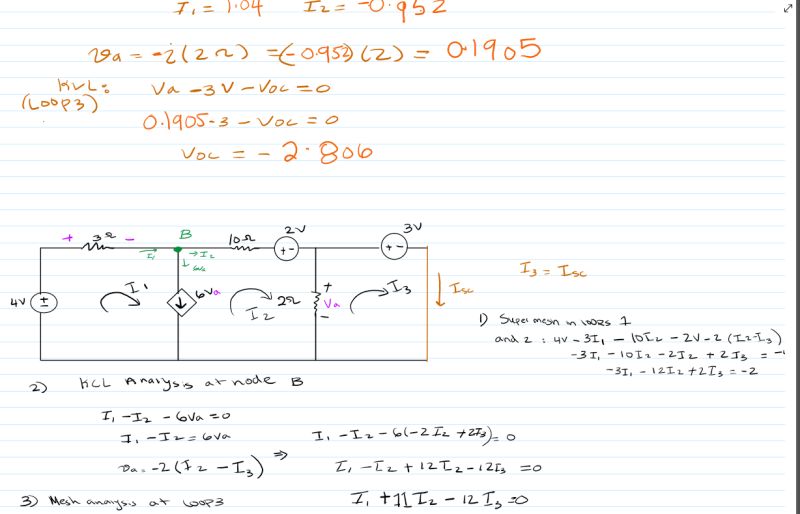 I₁ = 1.04 I₂ = -0.952
va = -i(2Ω) = (-0.952)(2) = 0.1905
KVL: Va - 3V - Voc = 0
(Loop3)
0.1905-3 - Voc = 0
Voc = -2.806
+ 3Ω - B 10Ω 2V 3V
I₁ → I₂ 6Va + - + -
4V ± I₁ 6Va I₂ 2Ω + Va - I₃ Isc
I₃ = Isc
1) Supermesh in loops 1
and 2 : 4V - 3I₁ - 10I₂ - 2V - 2(I₂-I₃)
-3I₁ - 10I₂ - 2I₂ + 2I₃ =
-3I₁ - 12I₂ + 2I₃ = -2
2) KCL Analysis at node B
I₁ - I₂ - 6Va = 0
I₁ - I₂ = 6Va
va = -2(I₂ - I₃) ⇒
I₁ - I₂ - 6(-2I₂ + 2I₃) = 0
I₁ - I₂ + 12I₂ - 12I₃ = 0
I₁ + 11I₂ - 12I₃ = 0
3) Mesh analysis at Loop3